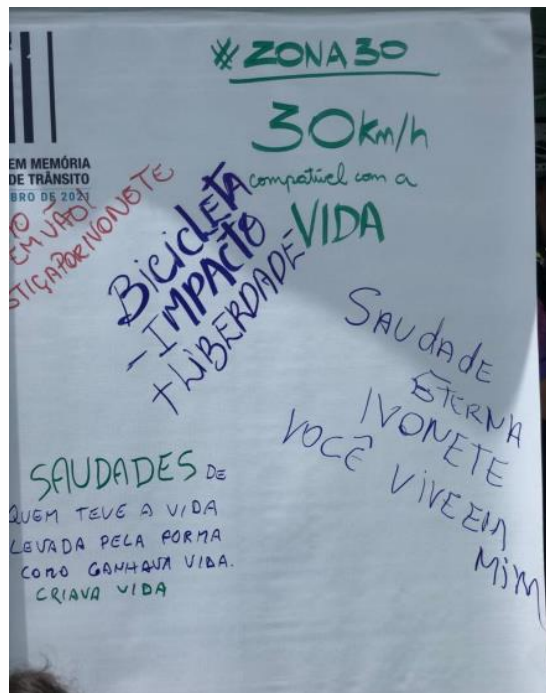 EM MEMÓRIA
DE TRÂNSITO
BRO DE 2021
EM VÃO!
STIÇA POR IVONETE
# ZONA 30
30 Km/h
compatível com a
VIDA
BICICLETA
- IMPACTO
+ LIBERDADE
SAUDADE
ETERNA
IVONETE
VOCÊ VIVE EM
MIM
SAUDADES DE
QUEM TEVE A VIDA
LEVADA PELA FORMA
COMO GANHAVA VIDA.
CRIAVA VIDA